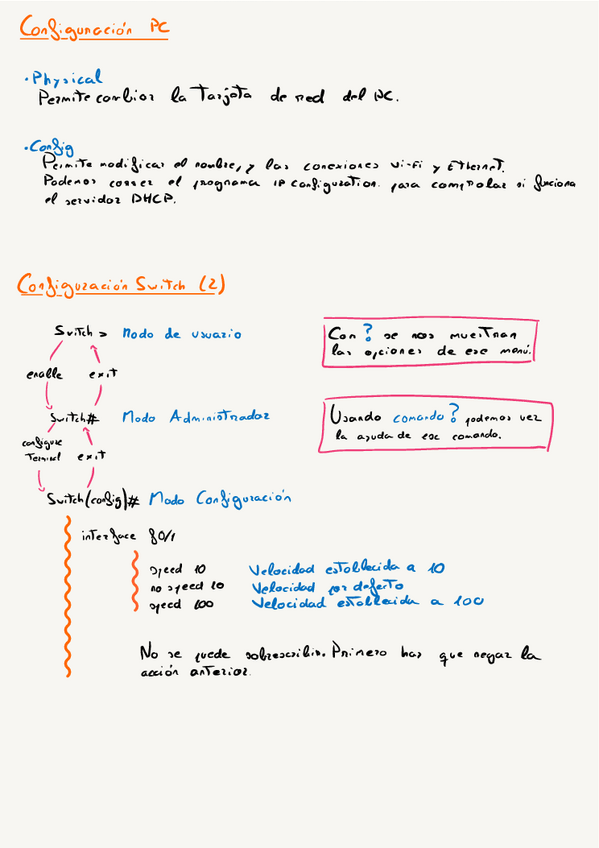 Configuración PC
• Physical
Permite cambiar la Tarjeta de red del PC.
• Config
Permite modificar el nombre, y las conexiones Wi-Fi y Ethernet.
Podemos correr el programa IP Configuration para comprobar si funciona
el servidor DHCP.
Configuración Switch (2)
Switch > Modo de usuario
Con ? se nos muestran
las opciones de ese menú.
enable exit
Switch# Modo Administrador
Usando comando? podemos ver
la ayuda de ese comando.
configure
Terminal exit
Switch(config)# Modo Configuración
interface f0/1
speed 10 Velocidad establecida a 10
no speed 10 Velocidad por defecto
speed 100 Velocidad establecida a 100
No se puede sobrescribir. Primero hay que negar la
acción anterior.